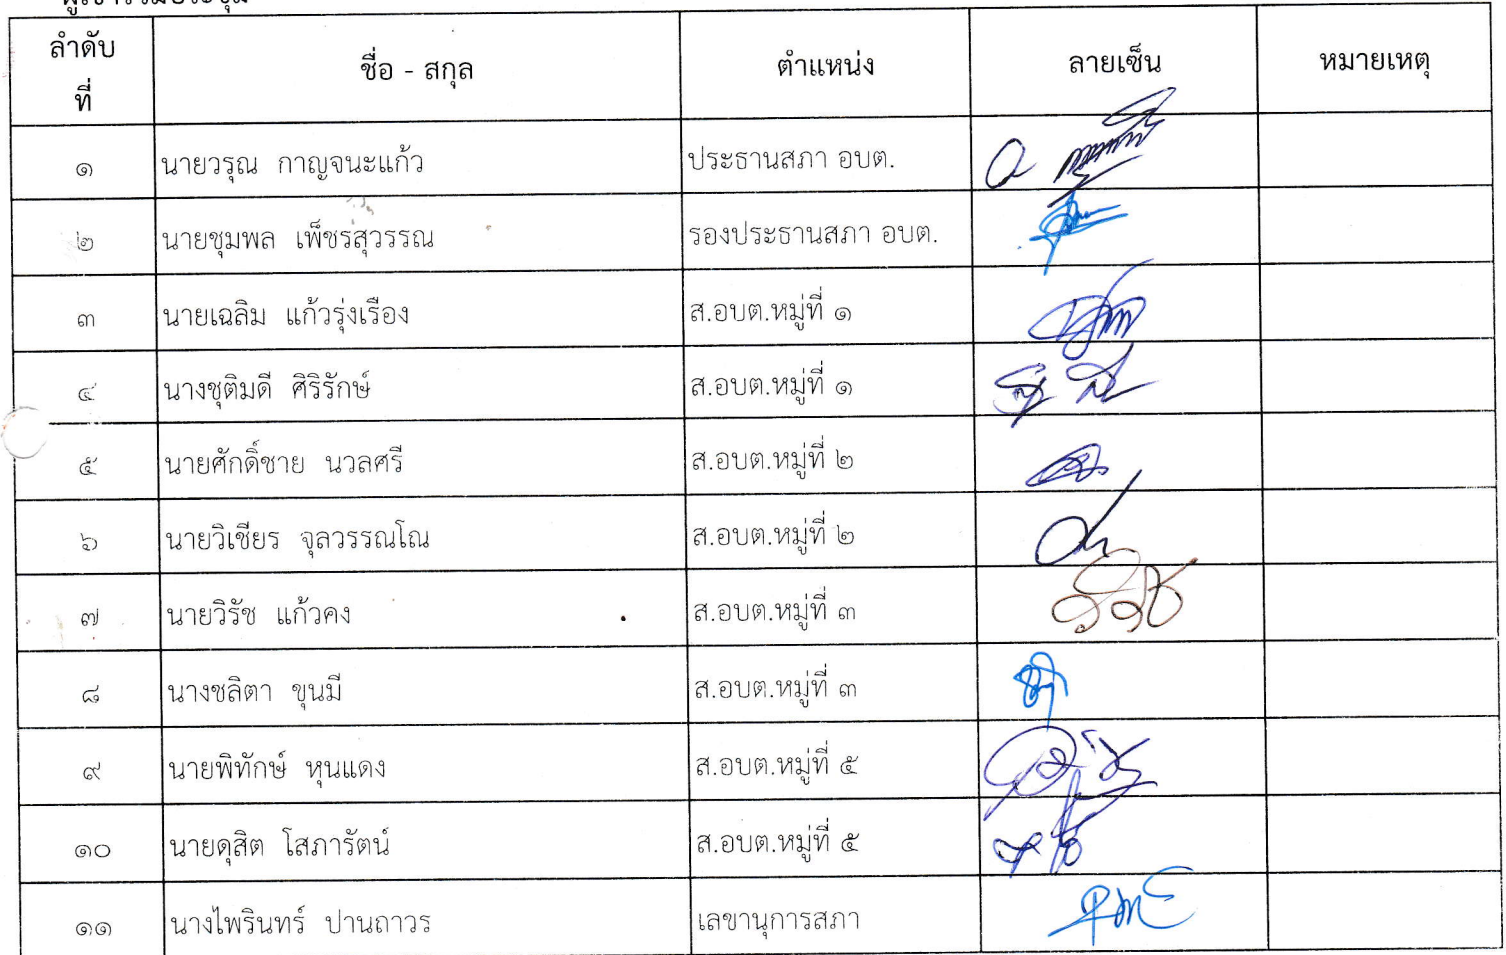 ผู้เข้าร่วมประชุม
ลำดับที่ ชื่อ - สกุล ตำแหน่ง ลายเซ็น หมายเหตุ
๑ นายวรุณ กาญจนะแก้ว ประธานสภา อบต.
๒ นายชุมพล เพ็ชรสุวรรณ รองประธานสภา อบต.
๓ นายเฉลิม แก้วรุ่งเรือง ส.อบต.หมู่ที่ ๑
๔ นางชุติมดี ศิริรักษ์ ส.อบต.หมู่ที่ ๑
๕ นายศักดิ์ชาย นวลศรี ส.อบต.หมู่ที่ ๒
๖ นายวิเชียร จุลวรรณโณ ส.อบต.หมู่ที่ ๒
๗ นายวิรัช แก้วคง ส.อบต.หมู่ที่ ๓
๘ นางชลิตา ขุนมี ส.อบต.หมู่ที่ ๓
๙ นายพิทักษ์ หุนแดง ส.อบต.หมู่ที่ ๕
๑๐ นายดุสิต โสภารัตน์ ส.อบต.หมู่ที่ ๕
๑๑ นางไพรินทร์ ปานถาวร เลขานุการสภา